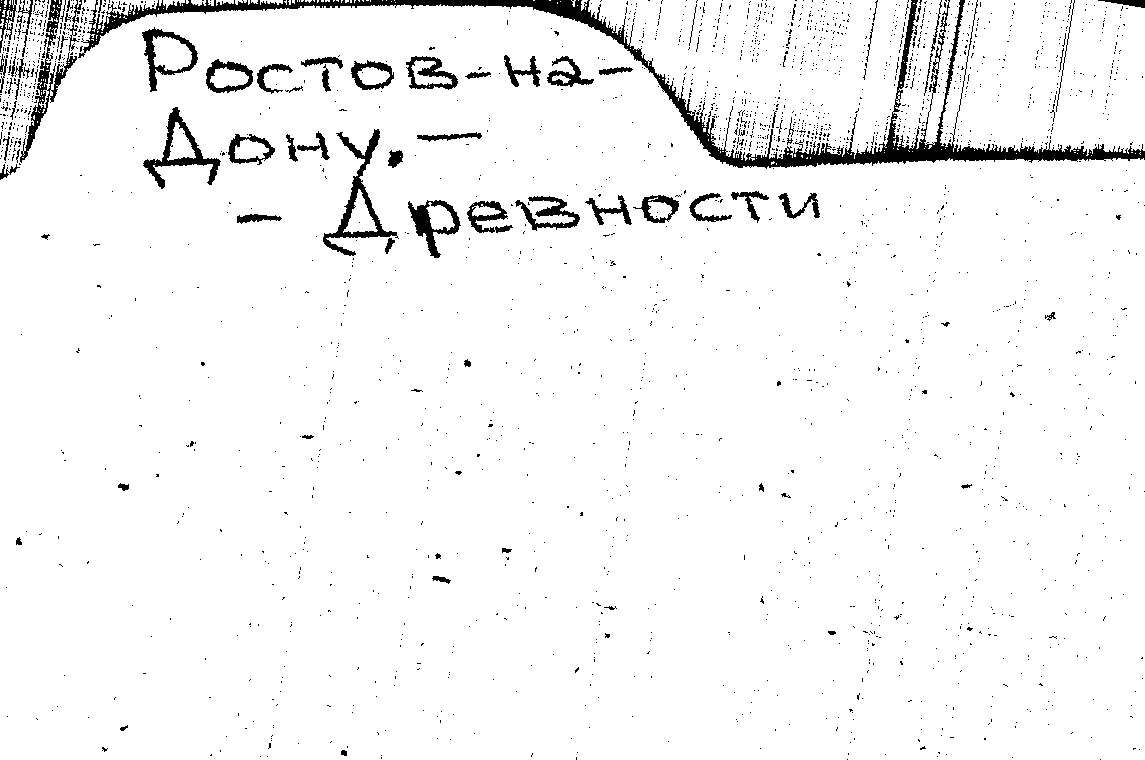 Ростов-на-
Дону. —
— Древности